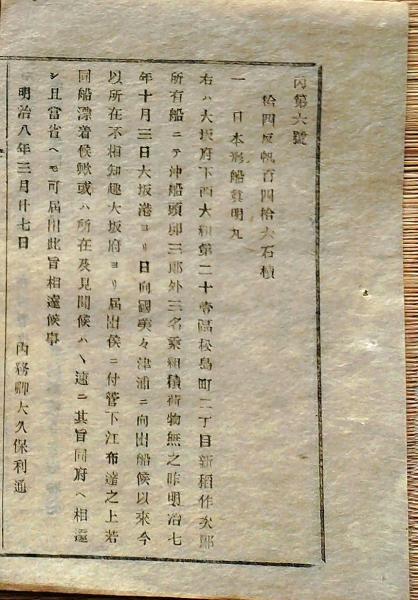 丙第六號
拾四反帆百四拾六石積
一 日本形船寳明丸
右ハ大坂府下西大組第二十壹區松島町二丁目新稲作次郎
所有船ニテ沖船頭卯三郎外三名乘組積荷物無之昨明治七
年十月三日大坂港ヨリ日向國美々津浦ニ向出船候以來今
以所在不相知趣大坂府ヨリ届出候ニ付管下江布達之上若
同船漂着候歟或ハ所在及見聞候ハヽ速ニ其旨同府ヘ相達
シ且當省ヘモ可届出此旨相達候事
明治八年三月廿七日
内務卿大久保利通